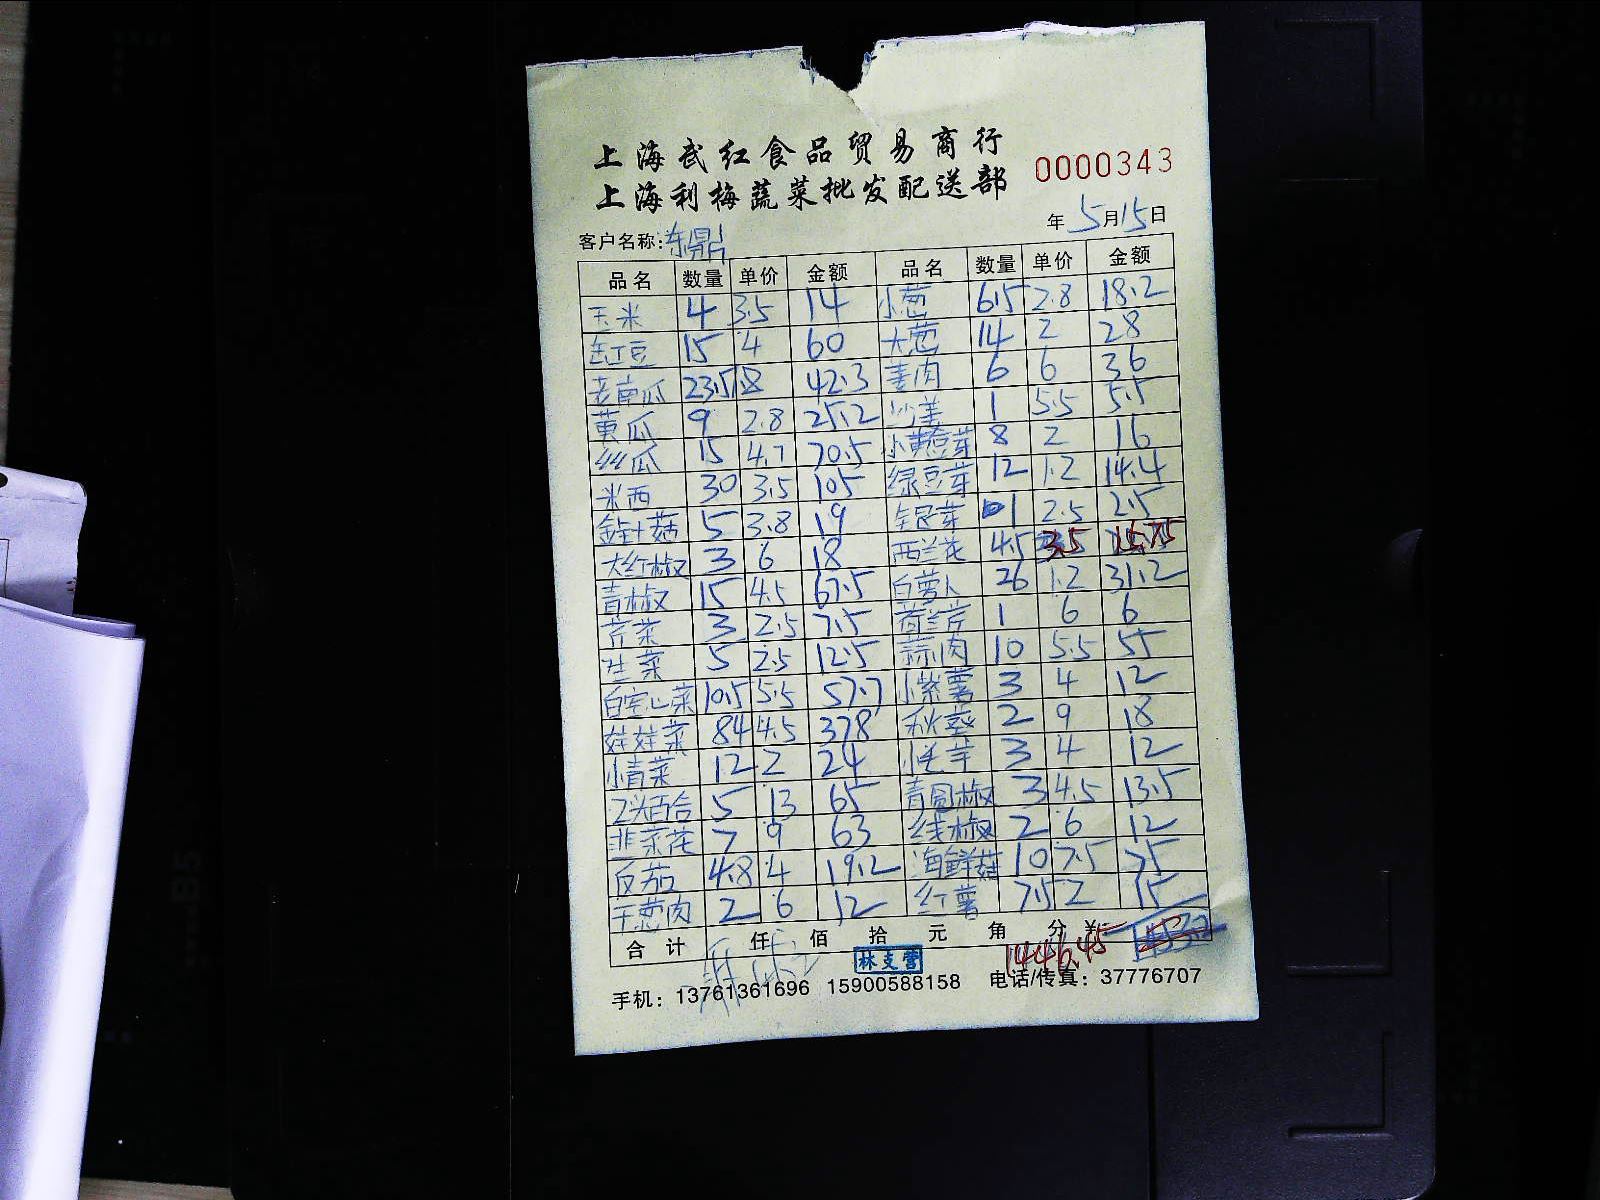 上海武红食品贸易商行
上海利梅蔬菜批发配送部
0000343
年5月15日
客户名称:东鼎
品名 数量 单价 金额 品名 数量 单价 金额
玉米 4 3.5 14 小葱 6.5 2.8 18.2
缸豆 15 4 60 大葱 14 2 28
老南瓜 23.5 1.8 42.3 姜肉 6 6 36
黄瓜 9 2.8 25.2 沙姜 1 5.5 5.5
丝瓜 15 4.7 70.5 小黄豆芽 8 2 16
米西 30 3.5 105 绿豆芽 12 1.2 14.4
金针菇 5 3.8 19 银芽 1 2.5 2.5
大红椒 3 6 18 西兰花 4.5 3.5 15.75
青椒 15 4.5 67.5 白萝卜 26 1.2 31.2
芹菜 3 2.5 7.5 荷兰芹 1 6 6
生菜 5 2.5 12.5 蒜肉 10 5.5 55
白宝心菜 10.5 5.5 57.7 小紫薯 3 4 12
娃娃菜 84 4.5 378 秋葵 2 9 18
小青菜 12 2 24 小毛芋 3 4 12
2头百合 5 13 65 青圆椒 3 4.5 13.5
韭菜花 7 9 63 线椒 2 6 12
反茄 4.8 4 19.2 海鲜菇 10 7.5 75
干葱肉 2 6 12 红薯 7.5 2 15
合计 仟 佰 拾 元 角 分 ¥:
1446.45
林支营
手机：13761361696 15900588158 电话/传真：37776707